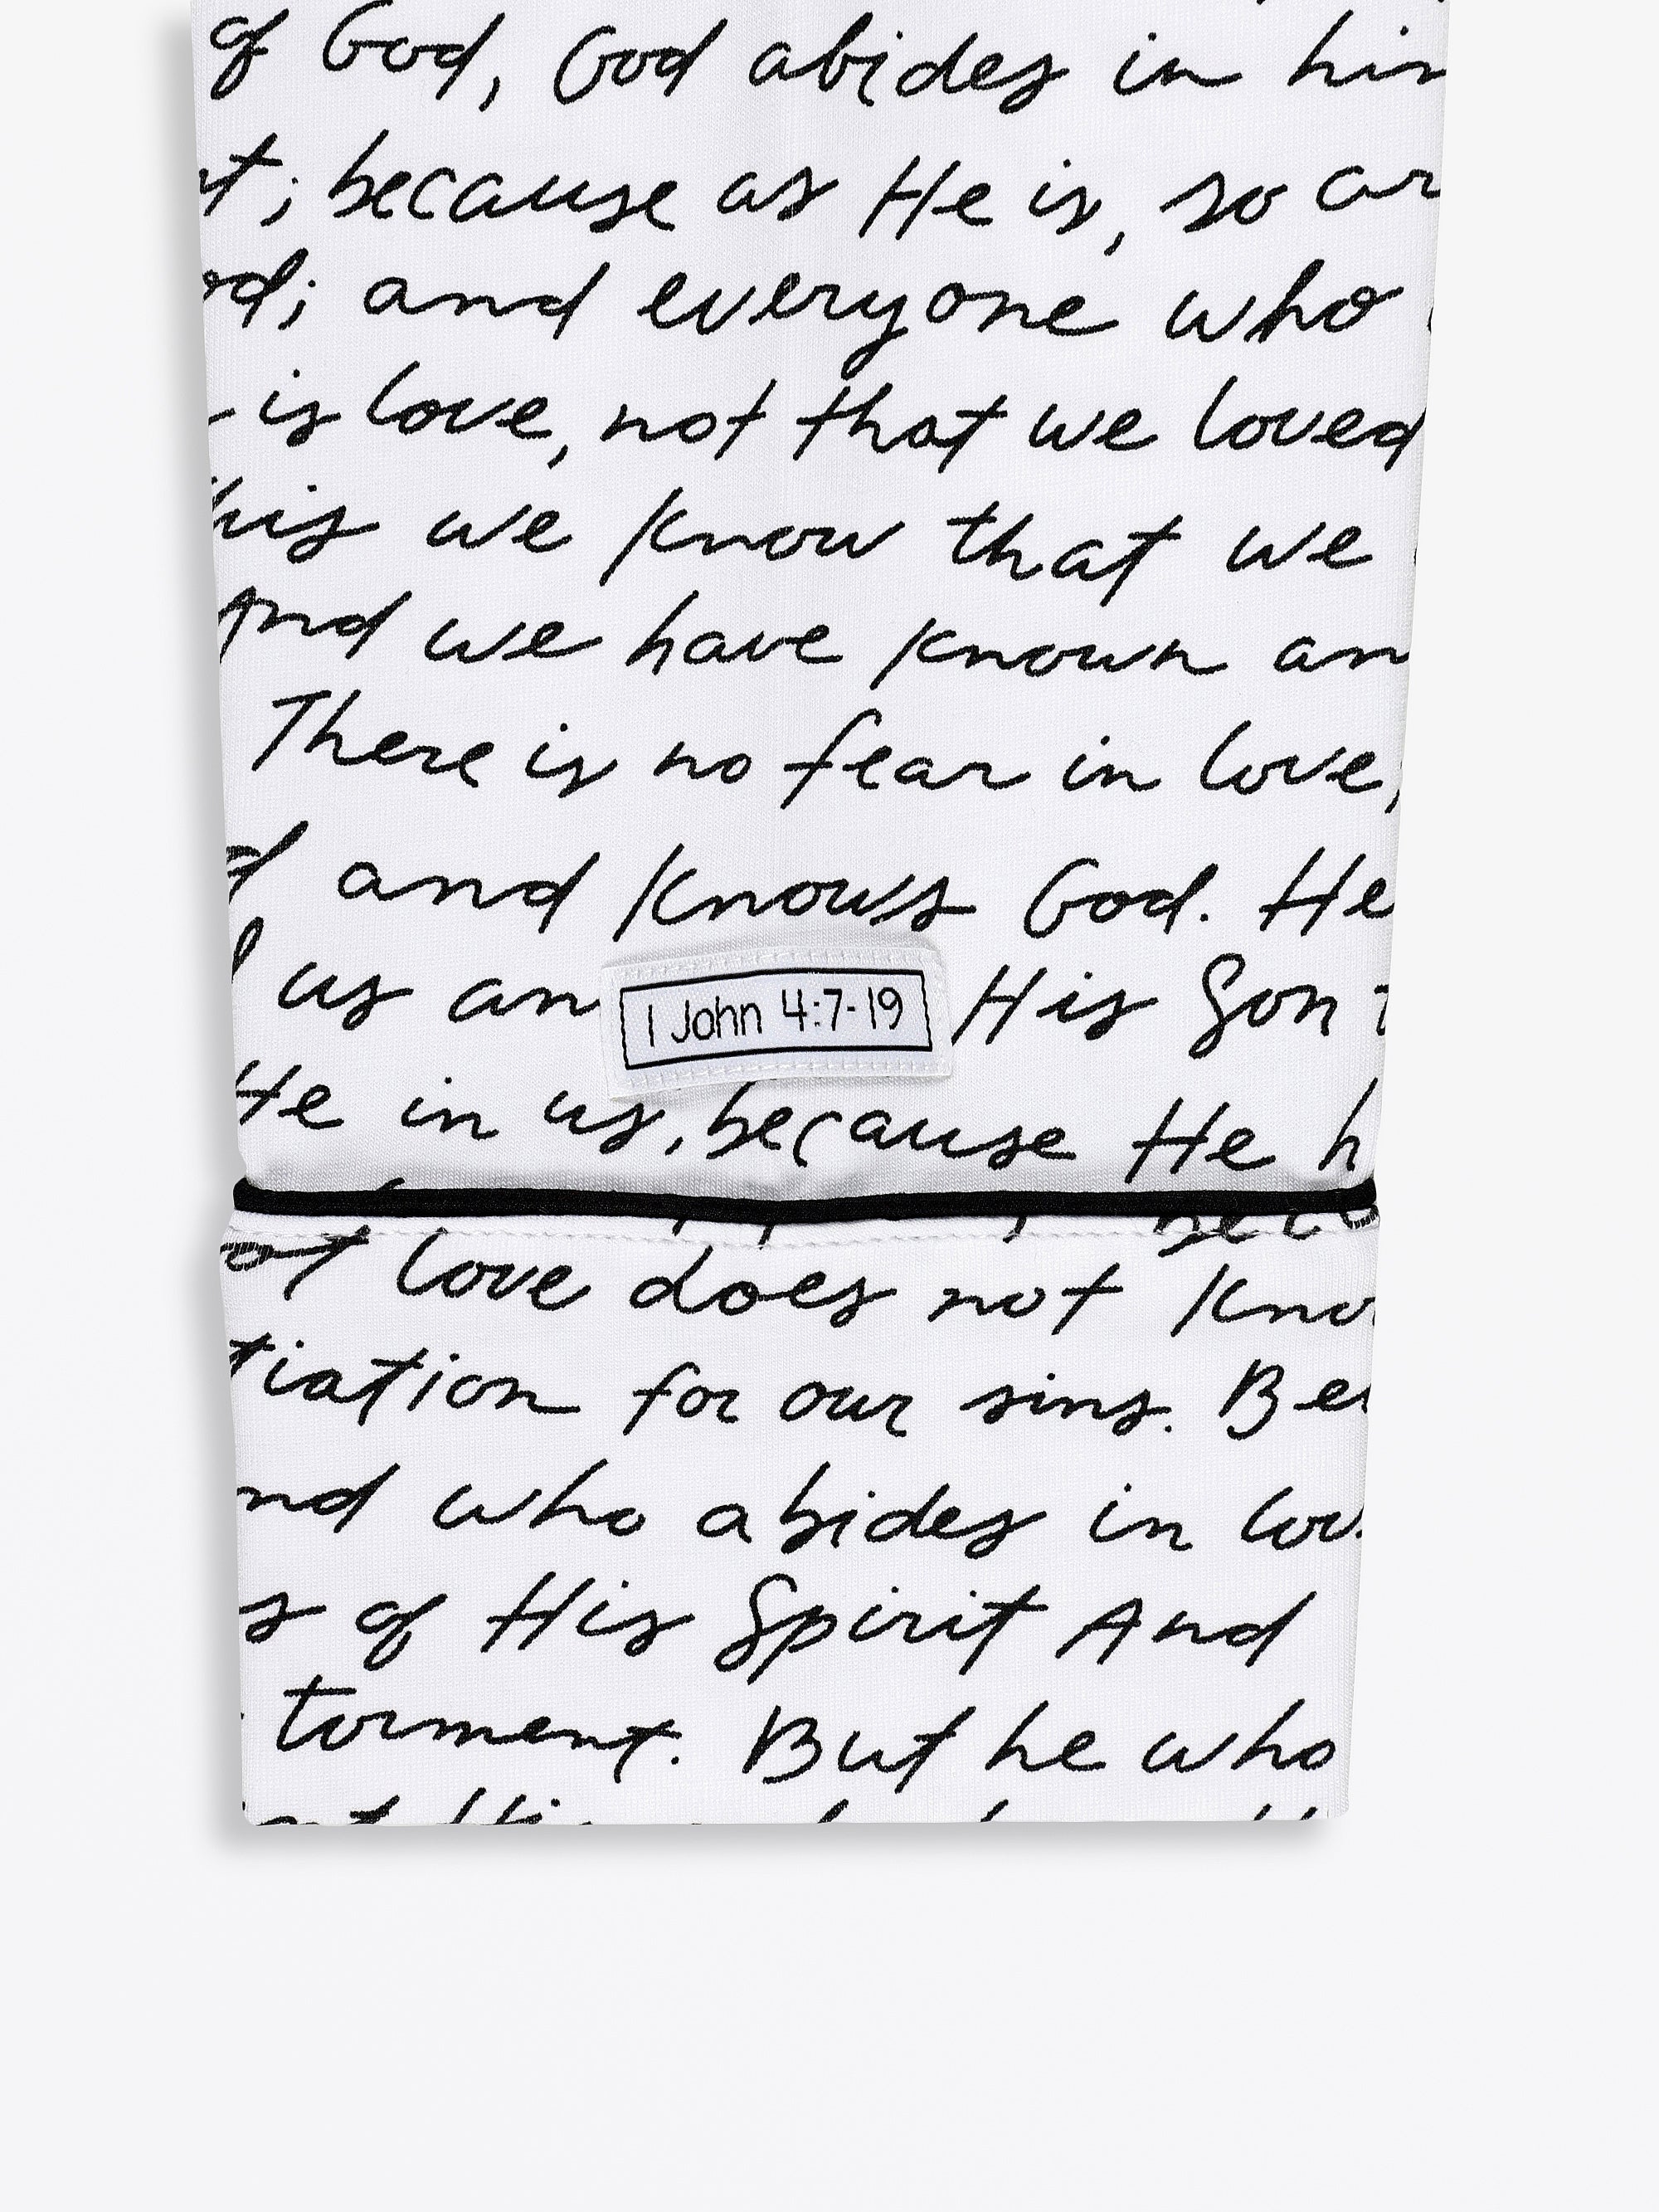 of God, God abides in him
t; because as He is, so ar
od; and everyone who
is love, not that we loved
his we know that we
And we have known an
There is no fear in love,
d and knows God. He
us an His Son
1 John 4:7-19
He in us, because He h
ot love does not kno
tiation for our sins. Be
nd who abides in lov
s of His Spirit And
torment. But he who